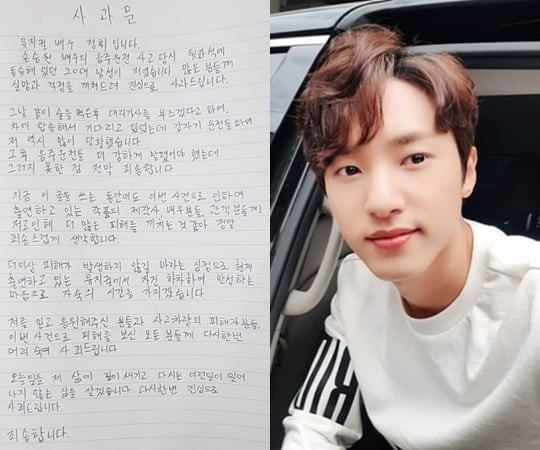 사 과 문
뮤지컬 배우 정휘 입니다.
손승원 배우의 음주운전 사고 당시 뒷좌석에
동승해 있던 20대 남성이 저였습니다. 많은 분들께
실망과 걱정을 끼쳐드려 진심으로 사과드립니다.
그날 같이 술을 먹은후 대리기사를 부르겠다고 하여,
차에 탑승해서 기다리고 있었는데 갑자기 운전을하여
저 역시 많이 당황했습니다.
그후 음주운전을 더 강하게 말렸어야 했는데
그러지 못한 점 정말 죄송합니다.
지금 이 글을 쓰는 동안에도 이번 사건으로 인하여
출연하고 있는 작품의 제작사, 배우분들, 관객분들께
저로인해 더 많은 피해를 끼치는 것 같아 정말
죄송스럽게 생각합니다.
더이상 피해가 발생하지 않길 바라는 심정으로 현재
출연하고 있는 뮤지컬에서 자진 하차하여 반성하는
마음으로 자숙의 시간을 가지겠습니다.
저를 믿고 응원해주신 분들과 사고차량의 피해자분들,
이번 사건으로 피해를 보신 모든 분들께 다시한번
머리 숙여 사죄드립니다
오늘일을 제 삶에 깊이 새기고 다시는 이런일이 일어
나지 않는 삶을 살겠습니다 다시한번 진심으로
사죄드립니다.
죄송합니다.